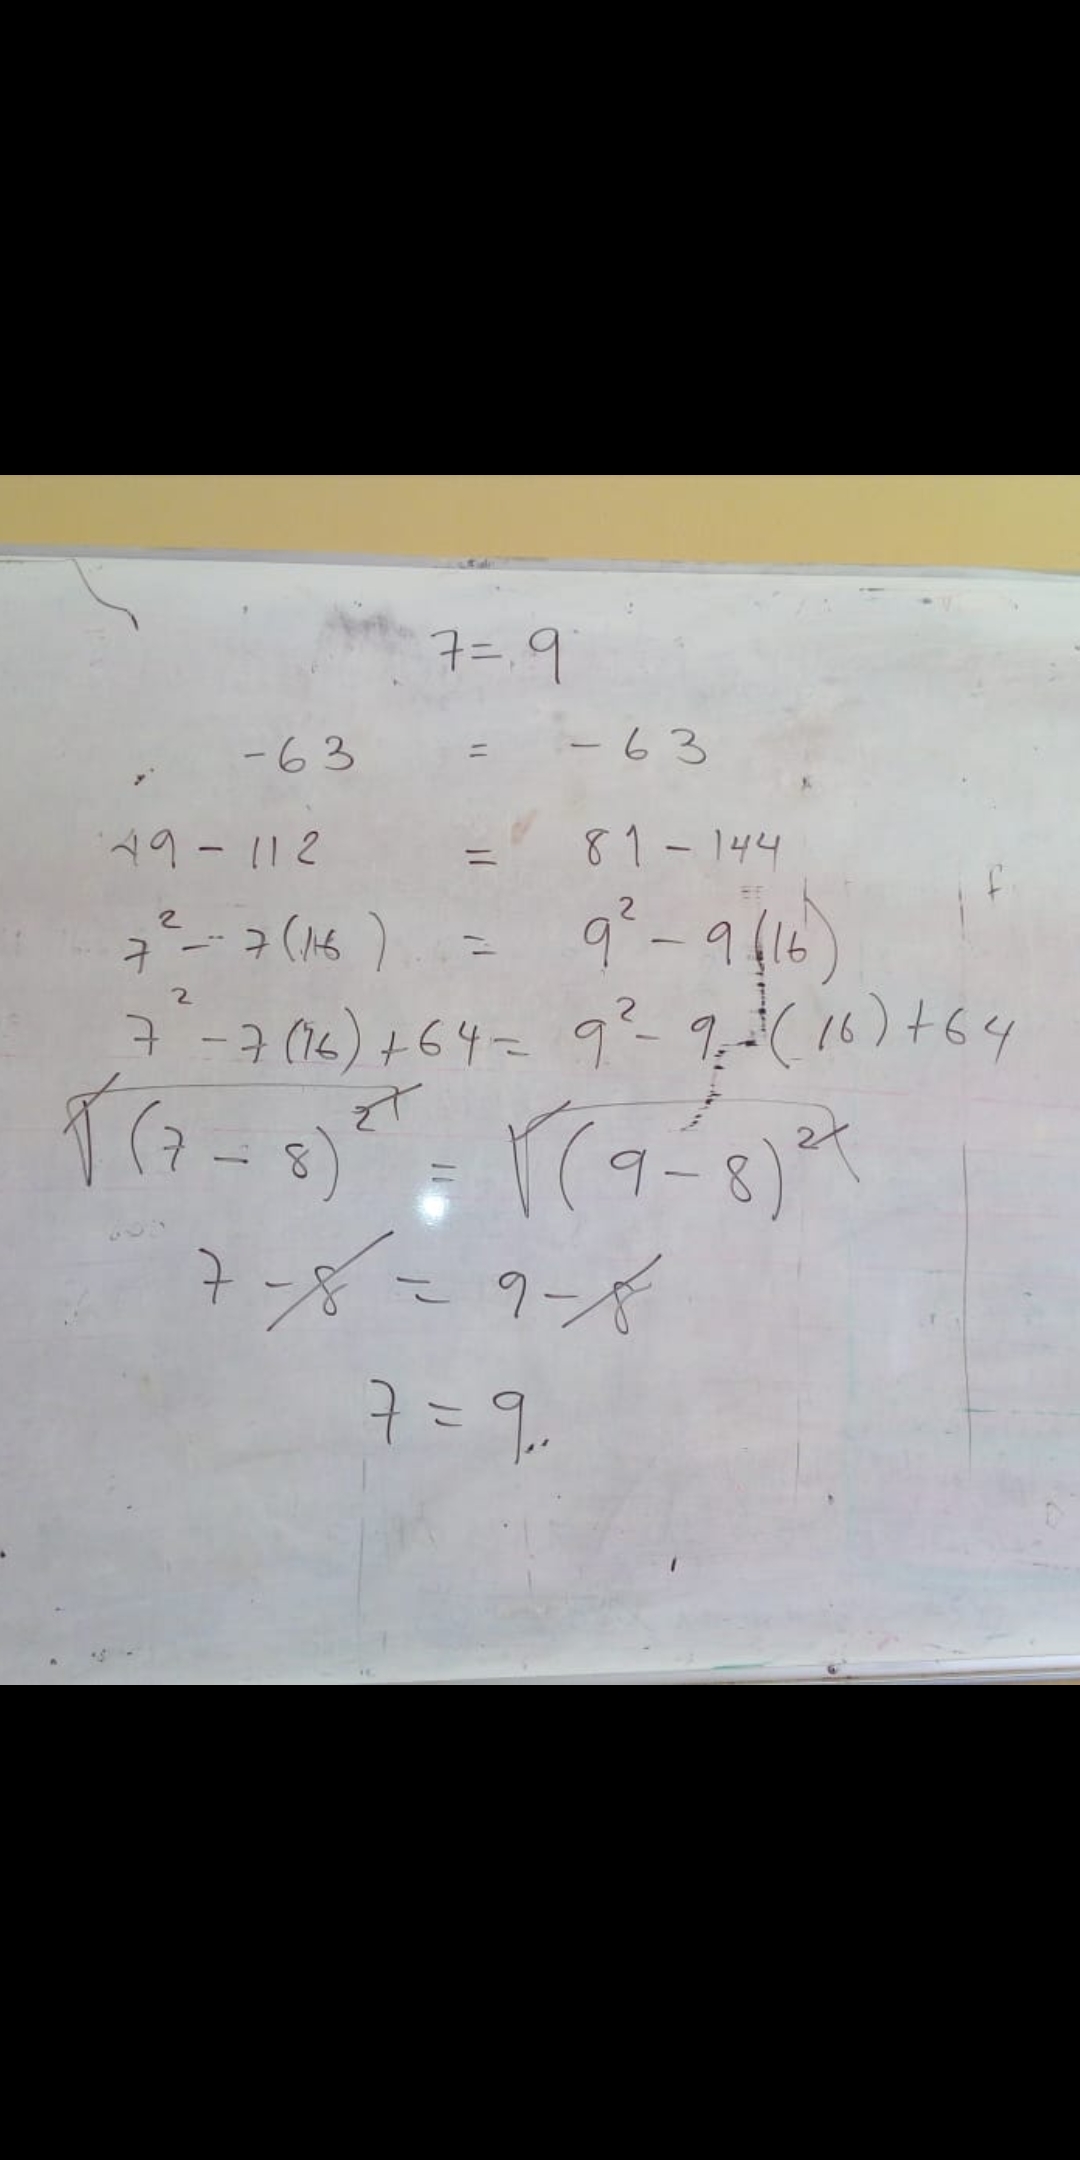 7 = 9
-63 = -63
49 - 112 = 81 - 144
7² - 7(16) = 9² - 9(16)
7² - 7(16) + 64 = 9² - 9 (16) + 64
√(7 - 8)² = √(9 - 8)²
7 - 8 = 9 - 8
7 = 9..